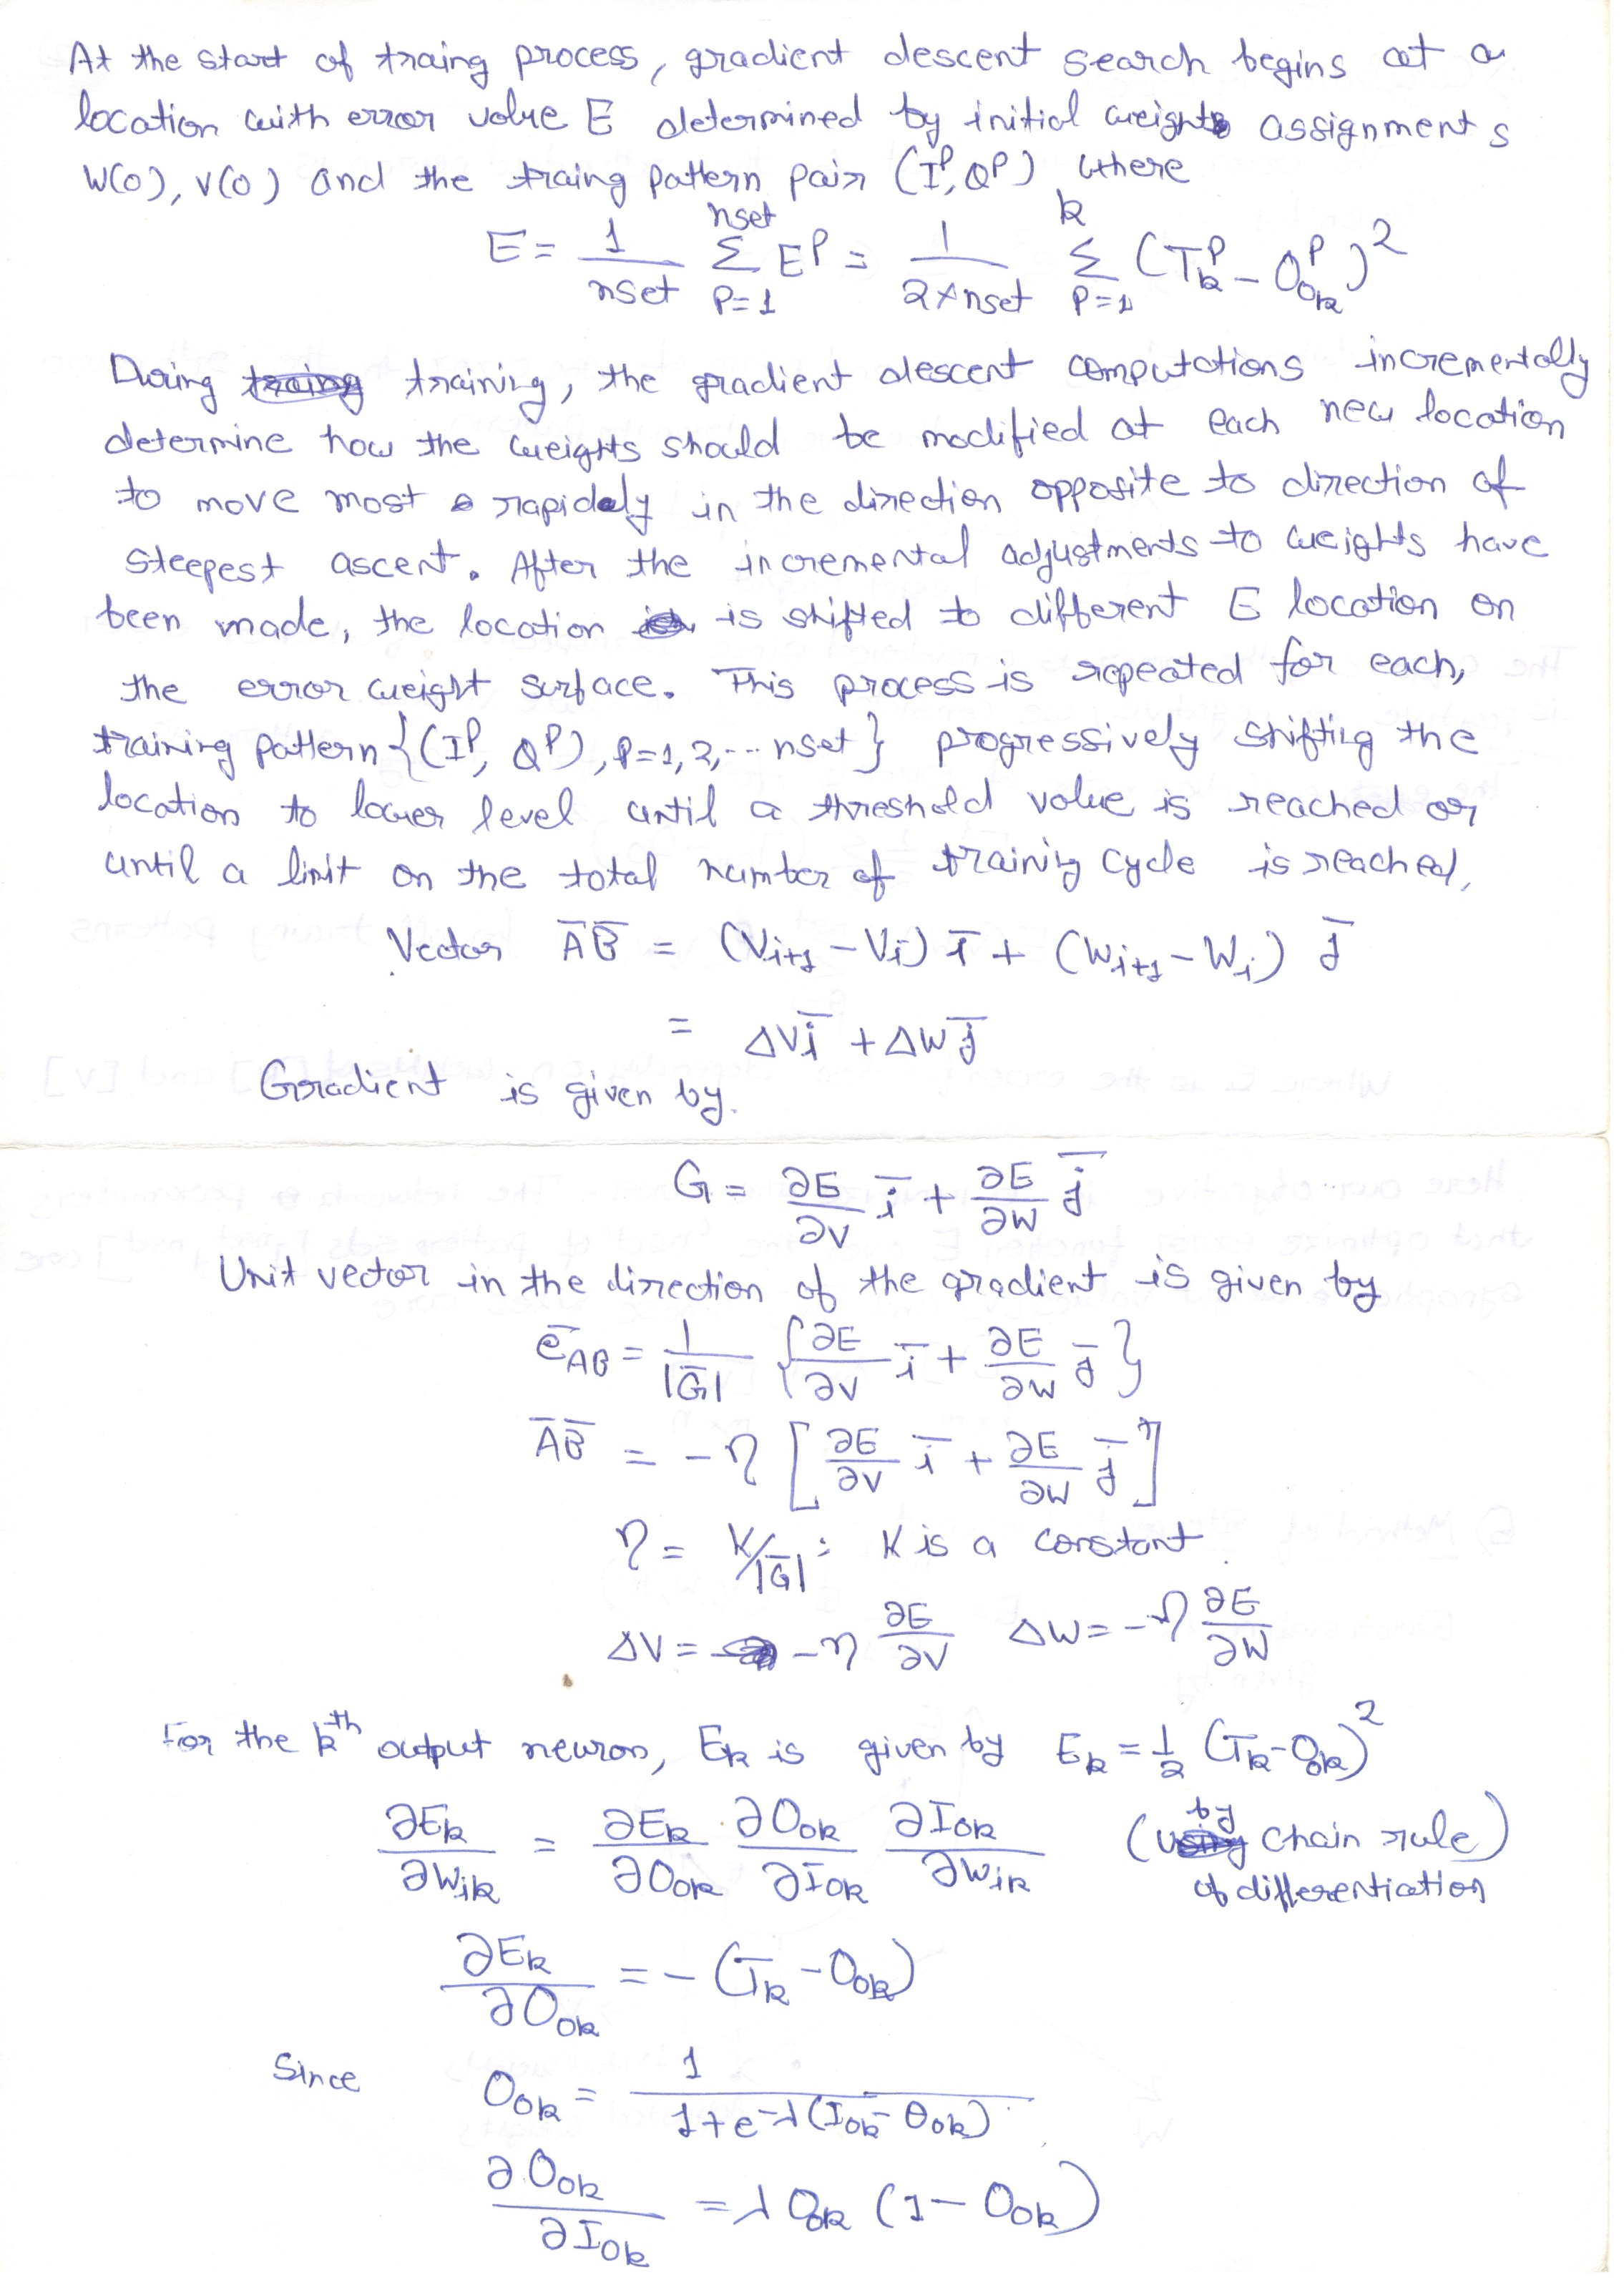 At the start of traing process, gradient descent search begins at a
location with error value E determined by initial weights assignments
W(0), V(0) and the traing pattern pair (I^P, O^P) where
E = 1/nset Σ_{P=1}^{nset} E^P = 1/(2×nset) Σ_{P=1}^{k} (T_k^P - O_{Ok}^P)^2
During training, the gradient descent computations incrementally
determine how the weights should be modified at each new location
to move most rapidaly in the direction opposite to direction of
steepest ascent. After the incremental adjustments to weights have
been made, the location is shifted to different E location on
the error weight surface. This process is repeated for each,
training pattern {(I^P, O^P), P=1,2,... nset} progressively shifting the
location to lower level until a threshold value is reached or
until a limit on the total number of training cycle is reached.
Vector A̅B̅ = (V_{i+1} - V_i) i̅ + (W_{i+1} - W_i) j̅
= ΔV i̅ + ΔW j̅
Gradient is given by.
G = ∂E/∂V i̅ + ∂E/∂W j̅
Unit vector in the direction of the gradient is given by
e̅_{AB} = 1/|G̅| {∂E/∂V i̅ + ∂E/∂W j̅}
A̅B̅ = -η [∂E/∂V i̅ + ∂E/∂W j̅]
η = K/|G̅| : K is a constant.
ΔV = -η ∂E/∂V ΔW = -η ∂E/∂W
For the k^th output neuron, E_k is given by E_k = 1/2 (T_k - O_{Ok})^2
∂E_k/∂W_{ik} = ∂E_k/∂O_{Ok} ∂O_{Ok}/∂I_{Ok} ∂I_{Ok}/∂W_{ik} (by chain rule)
of differentiation
∂E_k/∂O_{Ok} = -(T_k - O_{Ok})
Since O_{Ok} = 1/(1+e^{-λ(I_{Ok} - θ_{Ok})})
∂O_{Ok}/∂I_{Ok} = λ O_{Ok} (1 - O_{Ok})